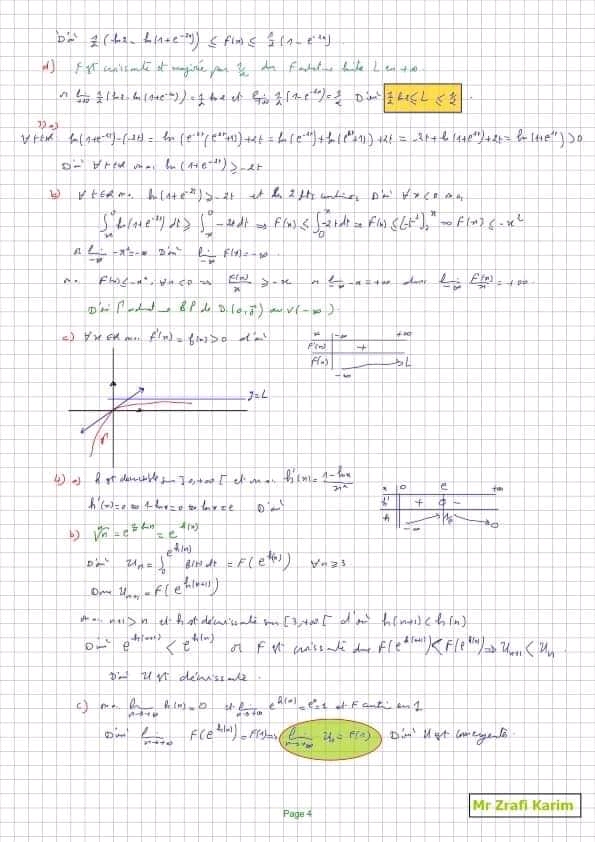 D'où 1/2 (ln2 - ln(1+e^-2x)) ≤ F(x) ≤ 1/2 (1 - e^-2x).
d) F est croissante et majorée par 1/2 donc F admet une limite L en +∞
or lim +∞ 1/2 (ln2 - ln(1+e^-2x)) = 1/2 ln2 et lim +∞ 1/2 (1 - e^-2x) = 1/2 D'où 1/2 ln2 ≤ L ≤ 1/2.
3) a)
∀t∈ℝ ln(1+e^-2t) - (-2t) = ln(e^-2t(e^2t+1)) + 2t = ln(e^-2t) + ln(e^2t+1) + 2t = -2t + ln(1+e^2t) + 2t = ln(1+e^2t) > 0
D'où ∀t∈ℝ on a ln(1+e^-2t) ≥ -2t
b) ∀t∈ℝ on a ln(1+e^-2t) ≥ -2t et les 2 fcts continues D'où ∀x<0 on a
∫_x^0 ln(1+e^-2t) dt ≥ ∫_x^0 -2t dt ⇒ F(x) ≤ ∫_0^x -2t dt ⇒ F(x) ≤ [-t²]_0^x ⇒ F(x) ≤ -x²
or lim -∞ -x² = -∞ D'où lim -∞ F(x) = -∞
on a F(x) ≤ -x², ∀x<0 ⇒ F(x)/x ≥ -x or lim -∞ -x = +∞ donc lim -∞ F(x)/x = +∞.
D'où Γ admet une BP de D.(0,j) au V(-∞).
c) ∀x∈ℝ on a F'(x) = f(x) > 0 d'où
x -∞ +∞
F'(x) +
F(x) -∞ L
y=L
Γ
4) a) h est dérivable sur ]0,+∞[ et on a h'(x) = (1-lnx)/x²
h'(x)=0 ⇔ 1-lnx=0 ⇔ x=e D'où
x 0 e +∞
h' + 0 -
h -∞ 1/e 0
b) ⁿ√n = e^(1/n ln n) = e^h(n)
D'où U_n = ∫_0^(e^h(n)) f(t) dt = F(e^h(n)) ∀n≥3
Donc U_n+1 = F(e^h(n+1))
on a n+1 > n et h est décroissante sur [3,+∞[ d'où h(n+1) < h(n)
D'où e^h(n+1) < e^h(n) or F est croissante donc F(e^h(n+1)) < F(e^h(n)) ⇒ U_n+1 < U_n
D'où U est décroissante.
c) on a lim n→+∞ h(n) = 0 et lim n→+∞ e^h(n) = e^0 = 1 et F continue en 1
D'où lim n→+∞ F(e^h(n)) = F(1) ⇒ lim n→+∞ U_n = F(1) D'où U est convergente.
Mr Zrafi Karim
Page 4